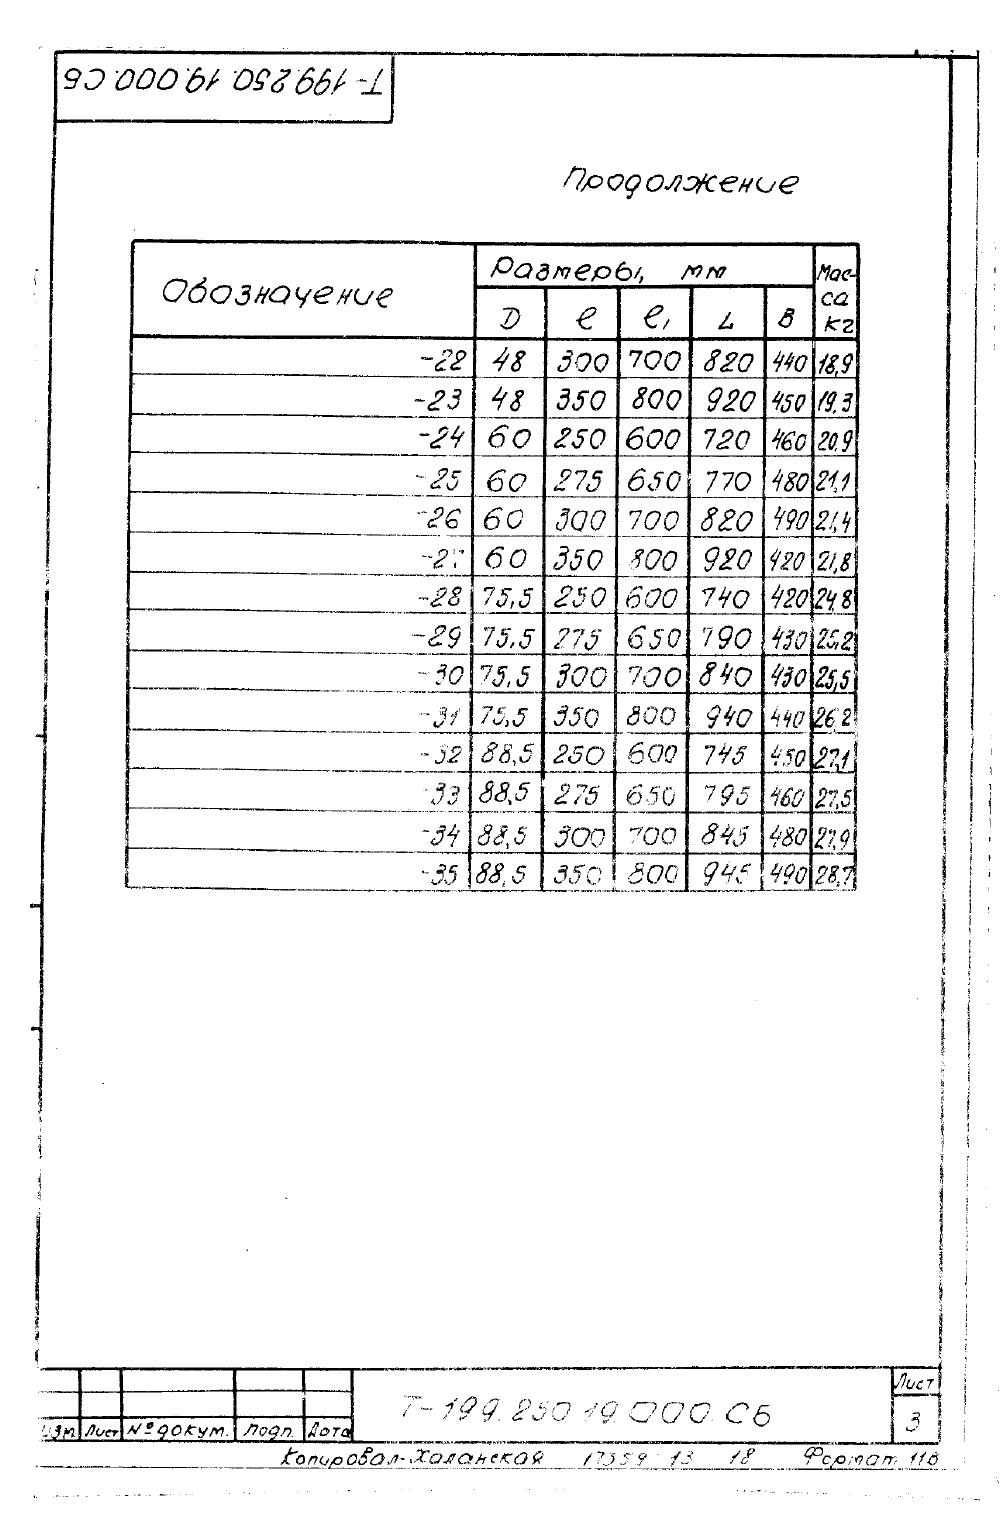 Т-199.250.19.000.СБ
Продолжение
Обозначение Размеры, мм Масса кг
D ℓ ℓ₁ L B
-22 48 300 700 820 440 18,9
-23 48 350 800 920 450 19,3
-24 60 250 600 720 460 20,9
-25 60 275 650 770 480 21,1
-26 60 300 700 820 490 21,4
-27 60 350 800 920 420 21,8
-28 75,5 250 600 740 420 24,8
-29 75,5 275 650 790 430 25,2
-30 75,5 300 700 840 430 25,5
-31 75,5 350 800 940 440 26,2
-32 88,5 250 600 745 450 27,1
-33 88,5 275 650 795 460 27,5
-34 88,5 300 700 845 480 27,9
-35 88,5 350 800 945 490 28,7
Т-199.250.19.000.СБ
Лист
3
Изм Лист № докум. Подп. Дата
Копировал-Халанская 17359-13 18 Формат 11б